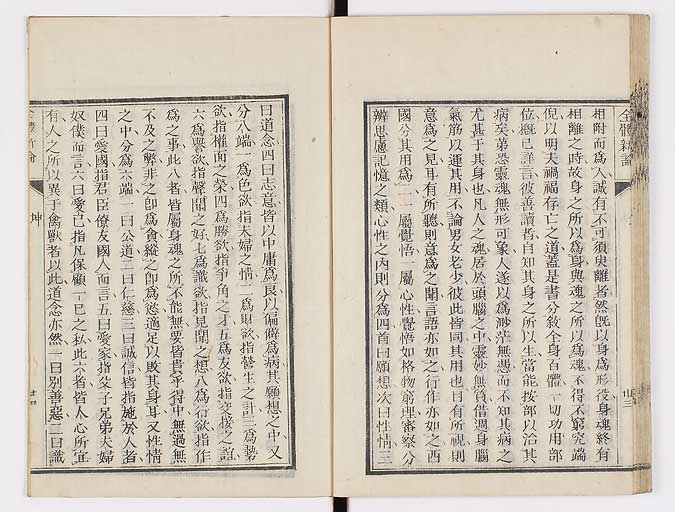 全體新論
相附而為人誠有不可須臾離者然既以身為形役身魂終有
相離之時故身之所以為身與魂之所以為魂不得不窮究端
倪以明夫禍福存亡之道蓋是書分敘全身百體一切功用部
位概已詳言彼善讀者自知其身之所以生當能按部以治其
病矣第恐靈魂無形可象人遂以為渺茫無憑而不知其病之
尤甚于其身也凡人之魂居於頭腦之中靈妙無質借週身腦
氣筋以運其用不論男女老少彼此皆同其用也目有所視則
意為之見耳有所聽則意為之聞言語亦如之行作亦如之西
國分其用為二一屬覺悟一屬心性覺悟如格物窮理審察分
辨思慮記憶之類心性之內則分為四首曰願想次曰性情三
曰道念四曰志意皆以中庸為良以偏僻為病其願想之中又
分八端一為色欲指夫婦之情二為財欲指營生之計三為勢
欲指權面之榮四為勝欲指爭角之才五為友欲指交接之誼
六為譽欲指聲聞之好七為識欲指見聞之想八為行欲指作
為之事此八者皆屬身魂之所不能無要皆貴乎得中無過無
不及之弊非之卽為貪縱之卽為慾適足以敗其身耳又性情
之中分為六端一曰公道二曰仁慈三曰誠信皆指施於人者
四曰愛國指君臣僚友國人而言五曰愛家指父子兄弟夫婦
奴僕而言六曰愛己指凡保顧一已之私此六者皆人心所宜
有人之所以異于禽獸者以此道念亦然一曰別善惡二曰識
坤